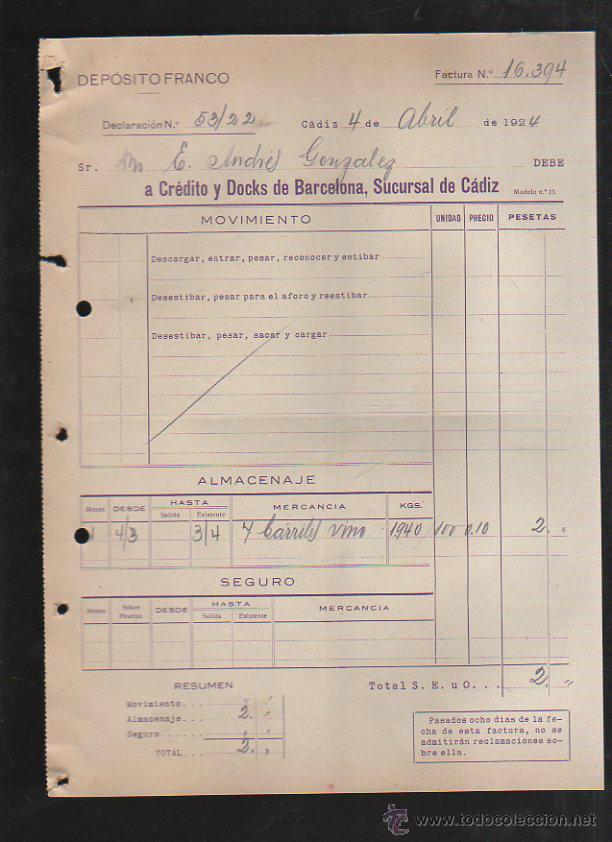 DEPÓSITO FRANCO
Factura N.º 16.394
Declaración N.º 53/22 Cádiz 4 de Abril de 1924
Sr. E. Andrés Gonzalez DEBE
a Crédito y Docks de Barcelona, Sucursal de Cádiz Modelo n.º 13
MOVIMIENTO UNIDAD PRECIO PESETAS
Descargar, entrar, pesar, reconocer y estibar
Desestibar, pesar para el aforo y reestibar
Desestibar, pesar, sacar y cargar
ALMACENAJE
Meses DESDE HASTA MERCANCIA KGS.
Salida Existente
1 4/3 3/4 7 Barriles vino 1.940 100 0.10 2. "
SEGURO
Meses Sobre Pesetas DESDE HASTA MERCANCIA
Salida Existente
RESUMEN
Total S. E. u O. . . 2. "
Movimiento. . . " "
Almacenaje. . . 2. "
Seguro. . . . . . " "
TOTAL. . . 2. "
Pasados ocho días de la fe-
cha de esta factura, no se
admitirán reclamaciones so-
bre ella.
www.todocoleccion.net